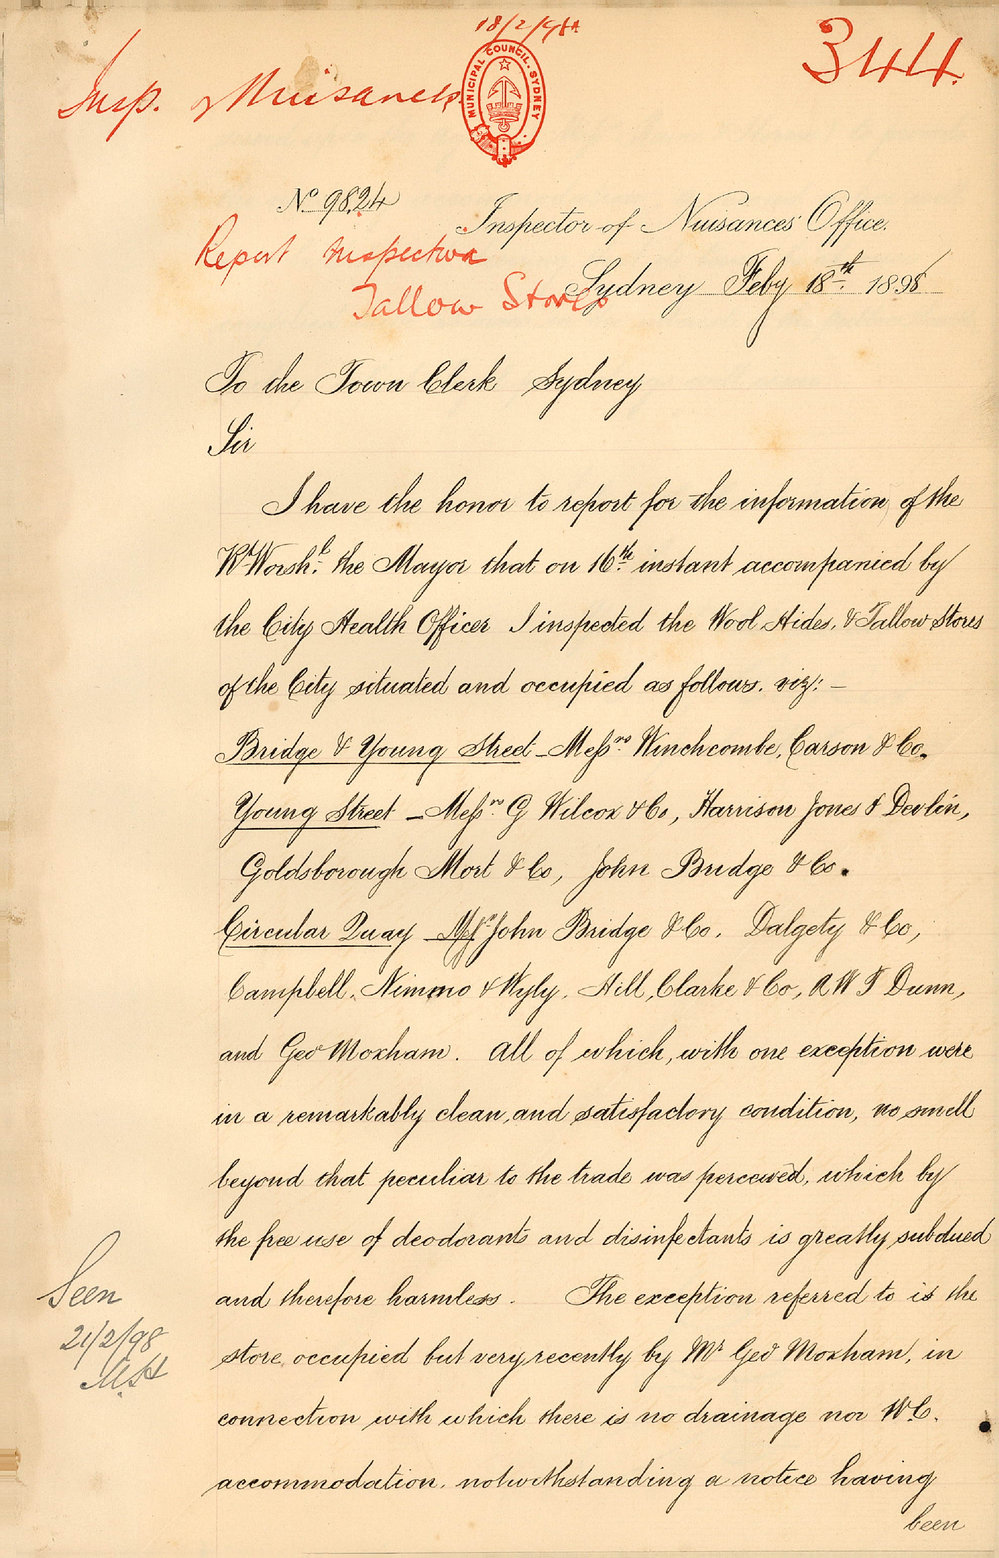 18/2/98
344
Insp. of Nuisances
MUNICIPAL COUNCIL. SYDNEY
No. 98.24
Inspector of Nuisances' Office.
Report Inspection
Tallow Stores
Sydney Feby 18th. 1898
To the Town Clerk Sydney
Sir
I have the honor to report for the information of the
Rt. Worshl. the Mayor that on 16th. instant accompanied by
the City Health Officer I inspected the Wool Hides, & Tallow Stores
of the City situated and occupied as follows. viz: –
Bridge & Young Street – Messrs. Winchcombe, Carson & Co.
Young Street – Messrs. G Wilcox & Co, Harrison Jones & Devlin,
Goldsborough Mort & Co, John Bridge & Co.
Circular Quay – Messrs John Bridge & Co. Dalgety & Co,
Campbell, Nimmo & Wyly, Hill, Clarke & Co, A W T Dunn,
and Geo Moxham. All of which, with one exception were
in a remarkably clean, and satisfactory condition, no smell
beyond that peculiar to the trade was perceived, which by
the free use of deodorants and disinfectants is greatly subdued
and therefore harmless. The exception referred to is the
store, occupied but very recently by Mr Geo Moxham, in
connection with which there is no drainage nor W.C.
accommodation, notwithstanding a notice having
been
Seen
21/2/98